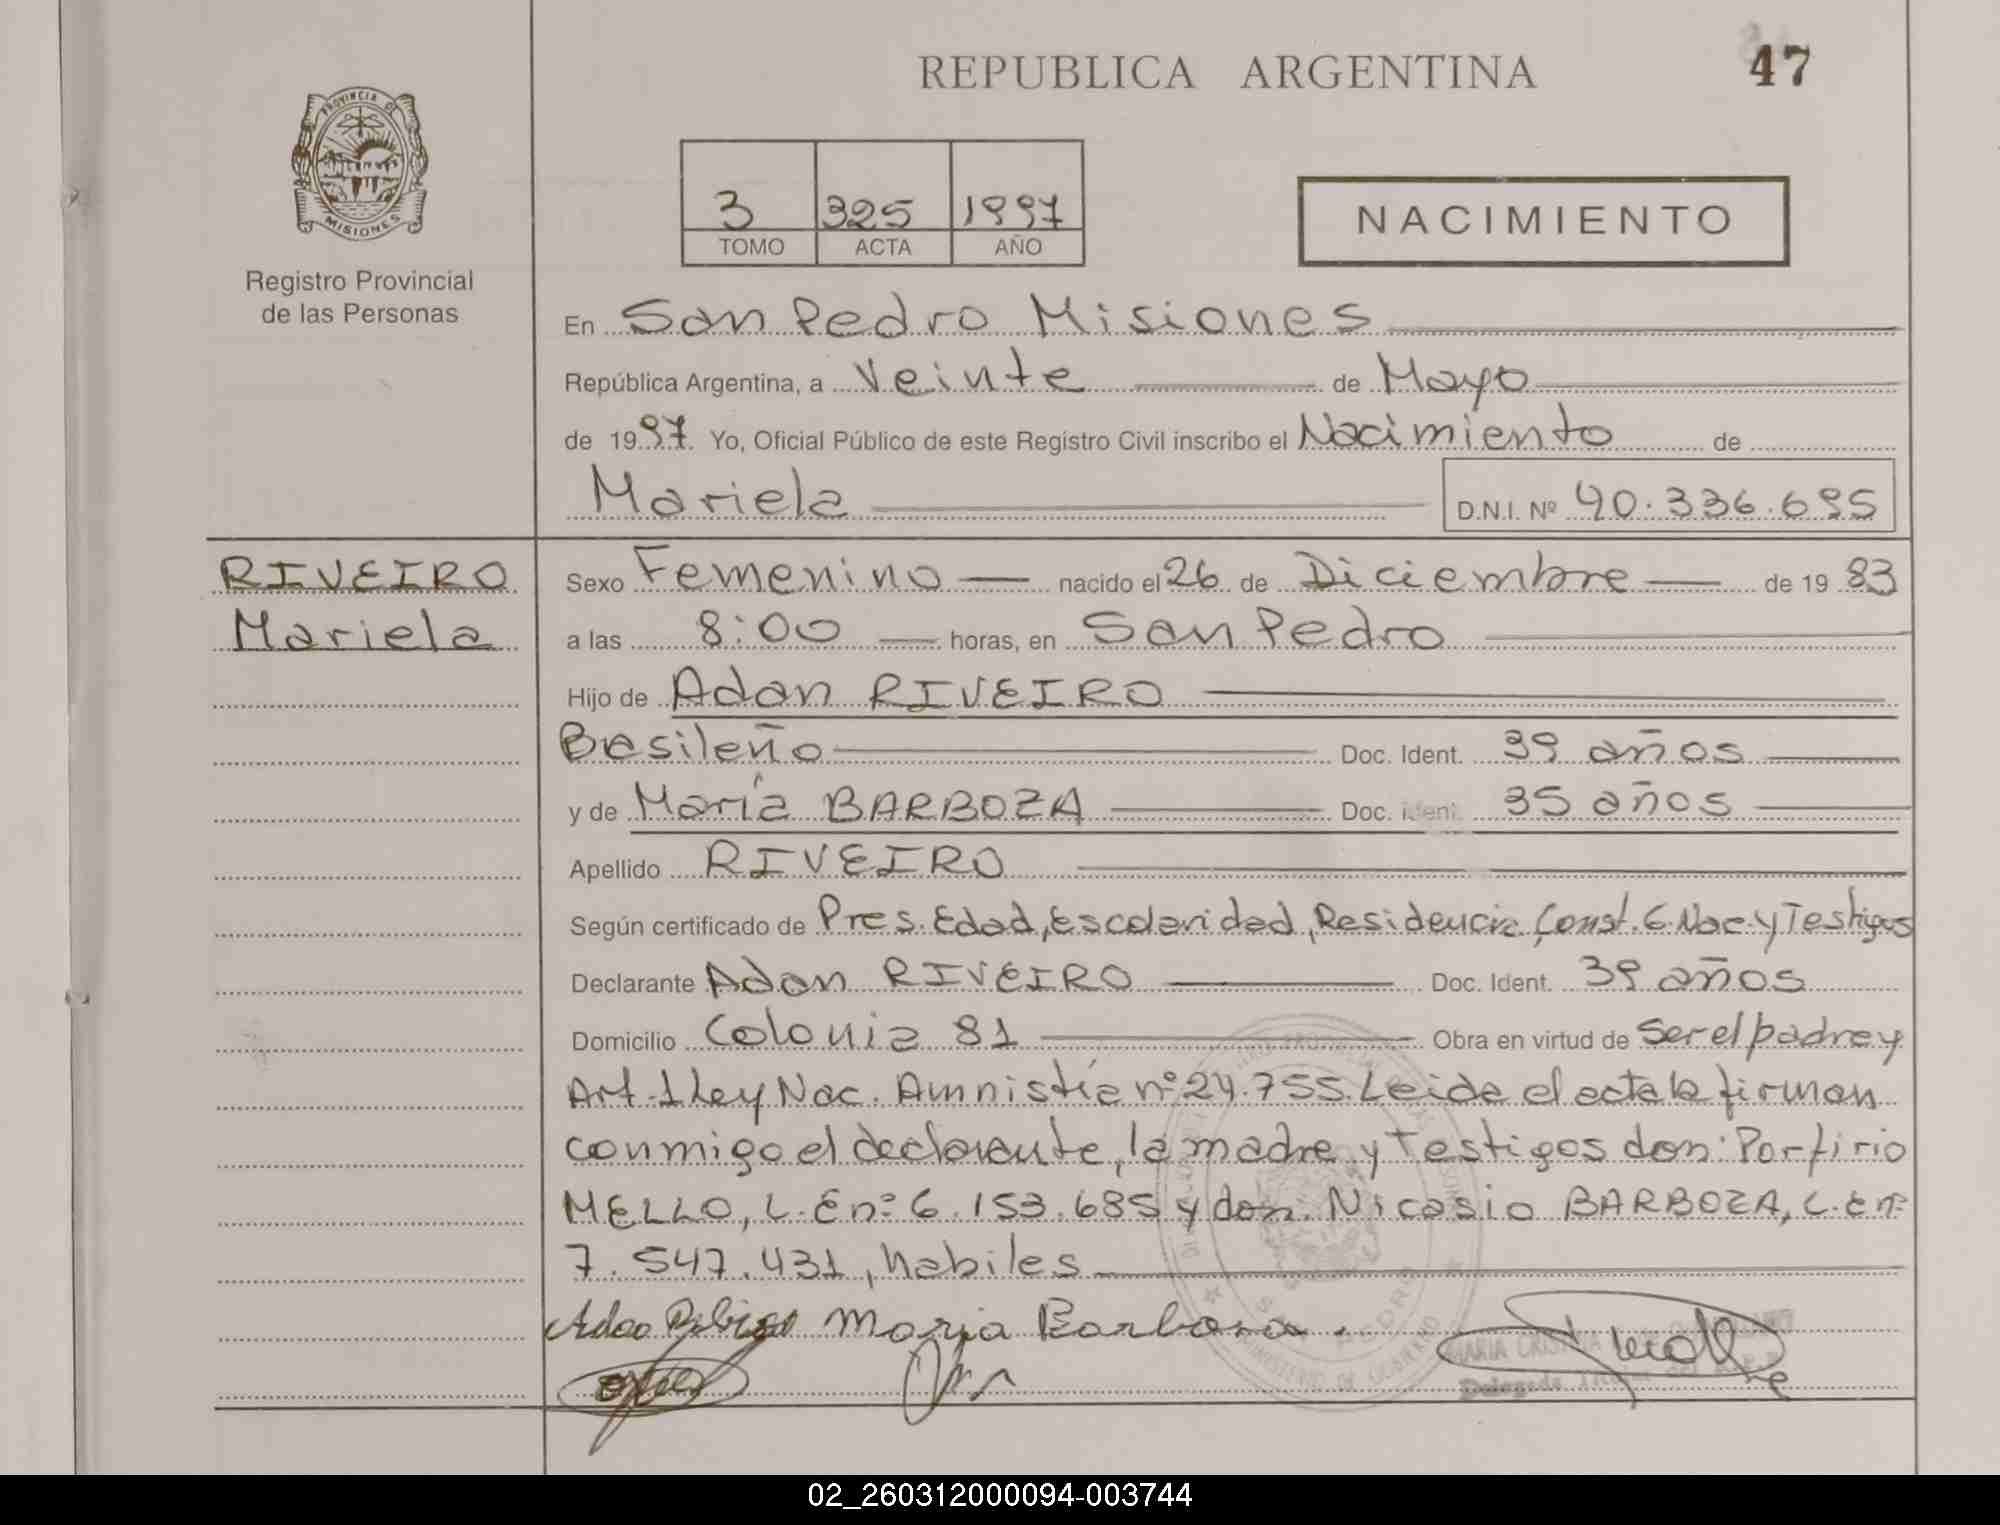 REPUBLICA ARGENTINA
47
PROVINCIA DE
MISIONES
Registro Provincial
de las Personas
3 325 1997
TOMO ACTA AÑO
NACIMIENTO
En San Pedro Misiones
República Argentina, a Veinte de Mayo
de 1997. Yo, Oficial Público de este Registro Civil inscribo el Nacimiento de
Mariela D.N.I. Nº 40.336.695
RIVEIRO
Mariela
Sexo Femenino nacido el 26 de Diciembre de 1983
a las 8:00 horas, en San Pedro
Hijo de Adan RIVEIRO
Brasileño Doc. Ident. 39 años
y de María BARBOZA Doc. Ident. 35 años
Apellido RIVEIRO
Según certificado de Pres. Edad, Escolaridad, Residencia, Const. E. Nac. y Testigos
Declarante Adan RIVEIRO Doc. Ident. 39 años
Domicilio Colonia 81 Obra en virtud de Ser el padre y
Art. 1 Ley Nac. Amnistía nº 24.755. Leida el acta la firman
conmigo el declarante, la madre y testigos don: Porfirio
MELLO, L.E nº 6.153.685 y don. Nicasio BARBOZA, L.E nº
7.547.431, habiles
Maria Barboza.
SAN PEDRO
MINISTERIO DE GOBIERNO
MARIA CRISTINA
02_260312000094-003744